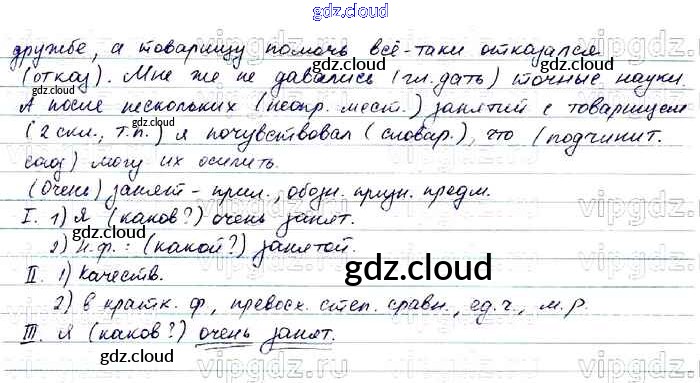 gdz.cloud
дружбе, а товарищу помочь всё-таки отказался
(отказ). Мне же не давались (гл. дать) точные науки.
А после нескольких (неопр. мест.) занятий с товарищем
(2 скл., т.п.) я почувствовал (словар.), что (подчинит.
союз) могу их осилить.
(Очень) занят - прил., обозн. призн. предм.
I. 1) Я (каков?) очень занят.
2) Н.ф.: (какой?) занятой.
II. 1) Качеств.
2) В кратк. ф, превосх. степ. сравн., ед.ч., м.р.
III. Я (каков?) очень занят.